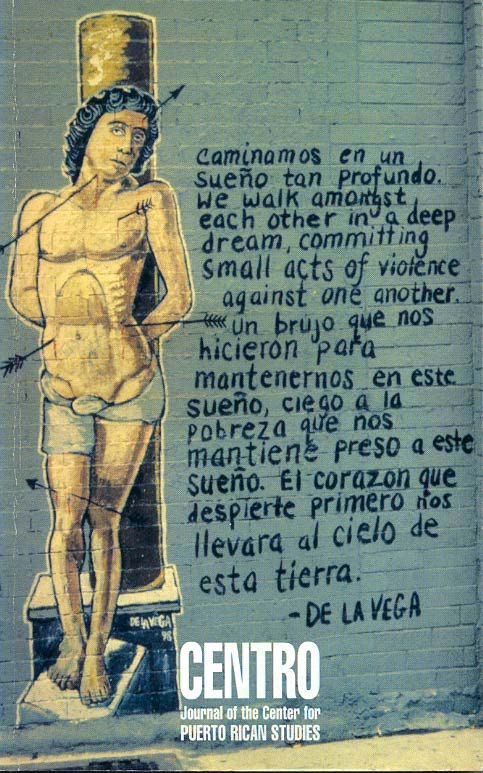 Caminamos en un
sueño tan profundo.
We walk amongst
each other in a deep
dream, committing
small acts of violence
against one another.
un brujo que nos
hicieron para
mantenernos en este
sueño, ciego a la
pobreza que nos
mantiene preso a este
sueño. El corazon que
despierte primero nos
llevara al cielo de
esta tierra.
-DE LA VEGA
DE LA VEGA
98
CENTRO
Journal of the Center for
PUERTO RICAN STUDIES